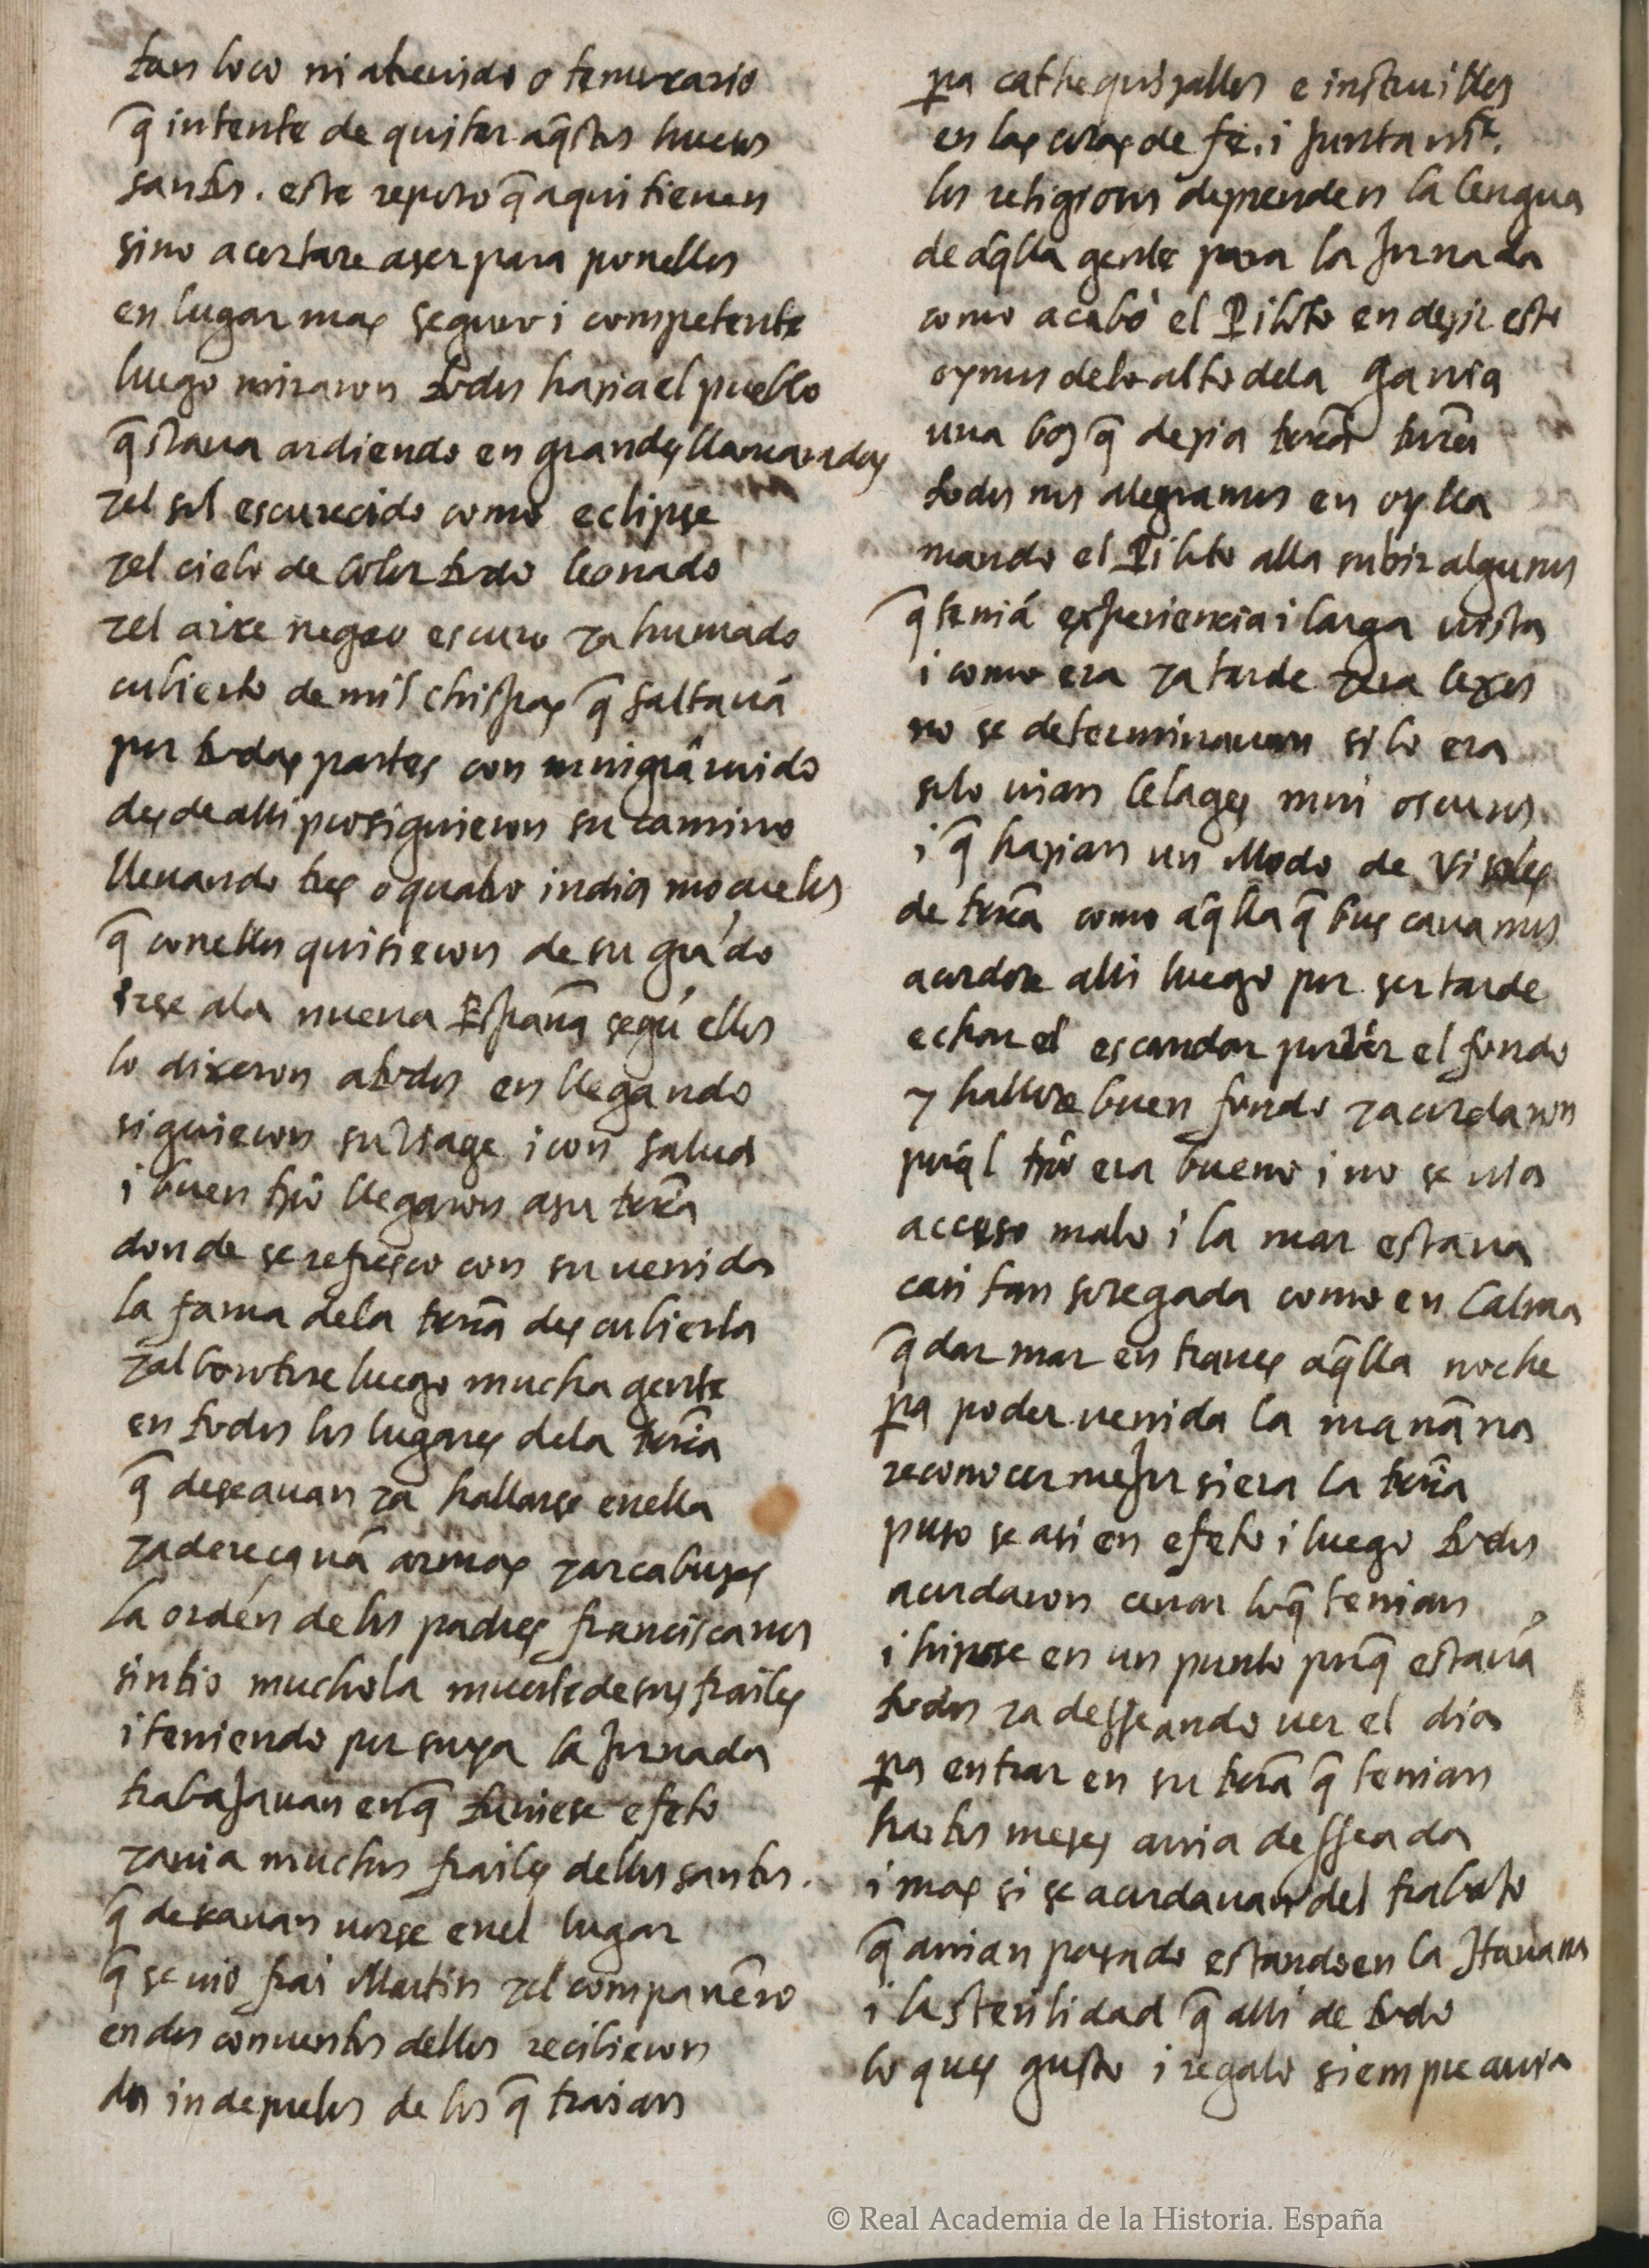 tan loco ni atreuido o temerario
q̃ intente de quitar aq̃stos huesos
santos. este reposo q̃ aqui tienen
sino acertare a ser para ponellos
en lugar mas seguro i competente
luego miraron todos hazia el pueblo
q̃staua ardiendo en grandes llamaradas
y el sol escurecido como eclipse
y el cielo de color todo leonado
y el aire negro escuro y ahumado
cubierto de mil chispas q̃ saltauã
por todas partes con mui grã ruido
desde alli prosiguieron su camino
lleuando tres o quatro indios moçuelos
q̃ con ellos quisieron de su grado
irse a la nueua España segũ ellos
lo dixeron a todos en llegando
siguieron su viage i con salud
i buen tp̃o llegaron a su terrã
donde se refresco con su uenida
la fama dela terrã descubierta
y alborotose luego mucha gente
en todos los lugares dela terrã
q̃ deseauan ya hallarse enella
y adereçauã armas y arcabuzes
la orden de los padres franciscanos
sintio mucho la muerte de sus frailes
i teniendo por suya la jornada
trabajauan enq̃ tuuiese efeto
y auia muchos frailes dellos santos.
q̃ deseauan uerse enel lugar
q̃ se uio frai Martin y el compañero
en dos conuentos dellos recibieron
dos indezuelos de los q̃ traian
pa cathequizallos e instruillos
en las cosas de fe. i juntamte.
los religiosos deprenden la lengua
de aq̃lla gente para la jornada
como acabó el Piloto en dezir esto
oymos de lo alto dela gauia
una boz q̃ dezia terrã terrã
todos nos alegramos en oylla
mando el Piloto alla subir algunos
q̃ teniã experiencia i larga uista
i como era ya tarde y era lexos
no se determinauan si lo era
solo uian celages mui oscuros
i q̃ hazian un Modo de visoles
de terrã como aq̃lla q̃ buscauamos
acordose alli luego por ser tarde
echar el escandar por uer el fondo
y hallose buen fondo y acordaron
porq̃l tp̃o era bueno i no se uia
acceso malo i la mar estaua
casi tan sosegada como en Calma
q̃dar mar en traues aq̃lla noche
pa poder uenida la mañana
reconocer mejor si era la terrã
puso se asi en efeto i luego todos
acordaron cenar loq̃ tenian
i hizose en un punto porq̃ estauã
todos ya desseando uer el dia
pa entrar en su terrã q̃ tenian
hartos meses auia desseada
i mas si se acordauan del trabajo
q̃ auian pasado estando en la Hauana
i la sterilidad q̃ alli de todo
lo ques gusto i regalo siempre auia
© Real Academia de la Historia. España